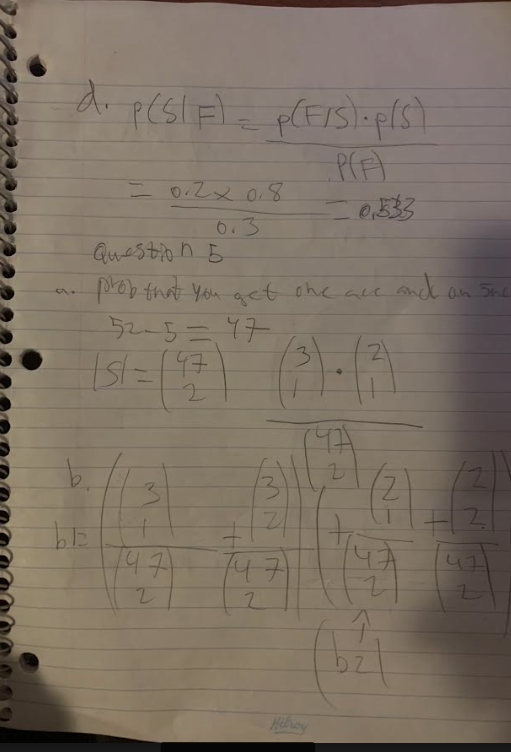 d. P(S|F) = P(F/S)·P(S)
P(F)
= 0.2 x 0.8
0.3
= 0.533
Question 5
a. prob that you get one ace and an
52-5 = 47
|S| = (47 2)
(3 1) · (2 1)
(47 2)
b.
b1= ((3 1) + (3 2)) (+ (2 1) + (2 2))
(47 2) (47 2) (47 2) (47 2)
↑
(b2)
Hilroy